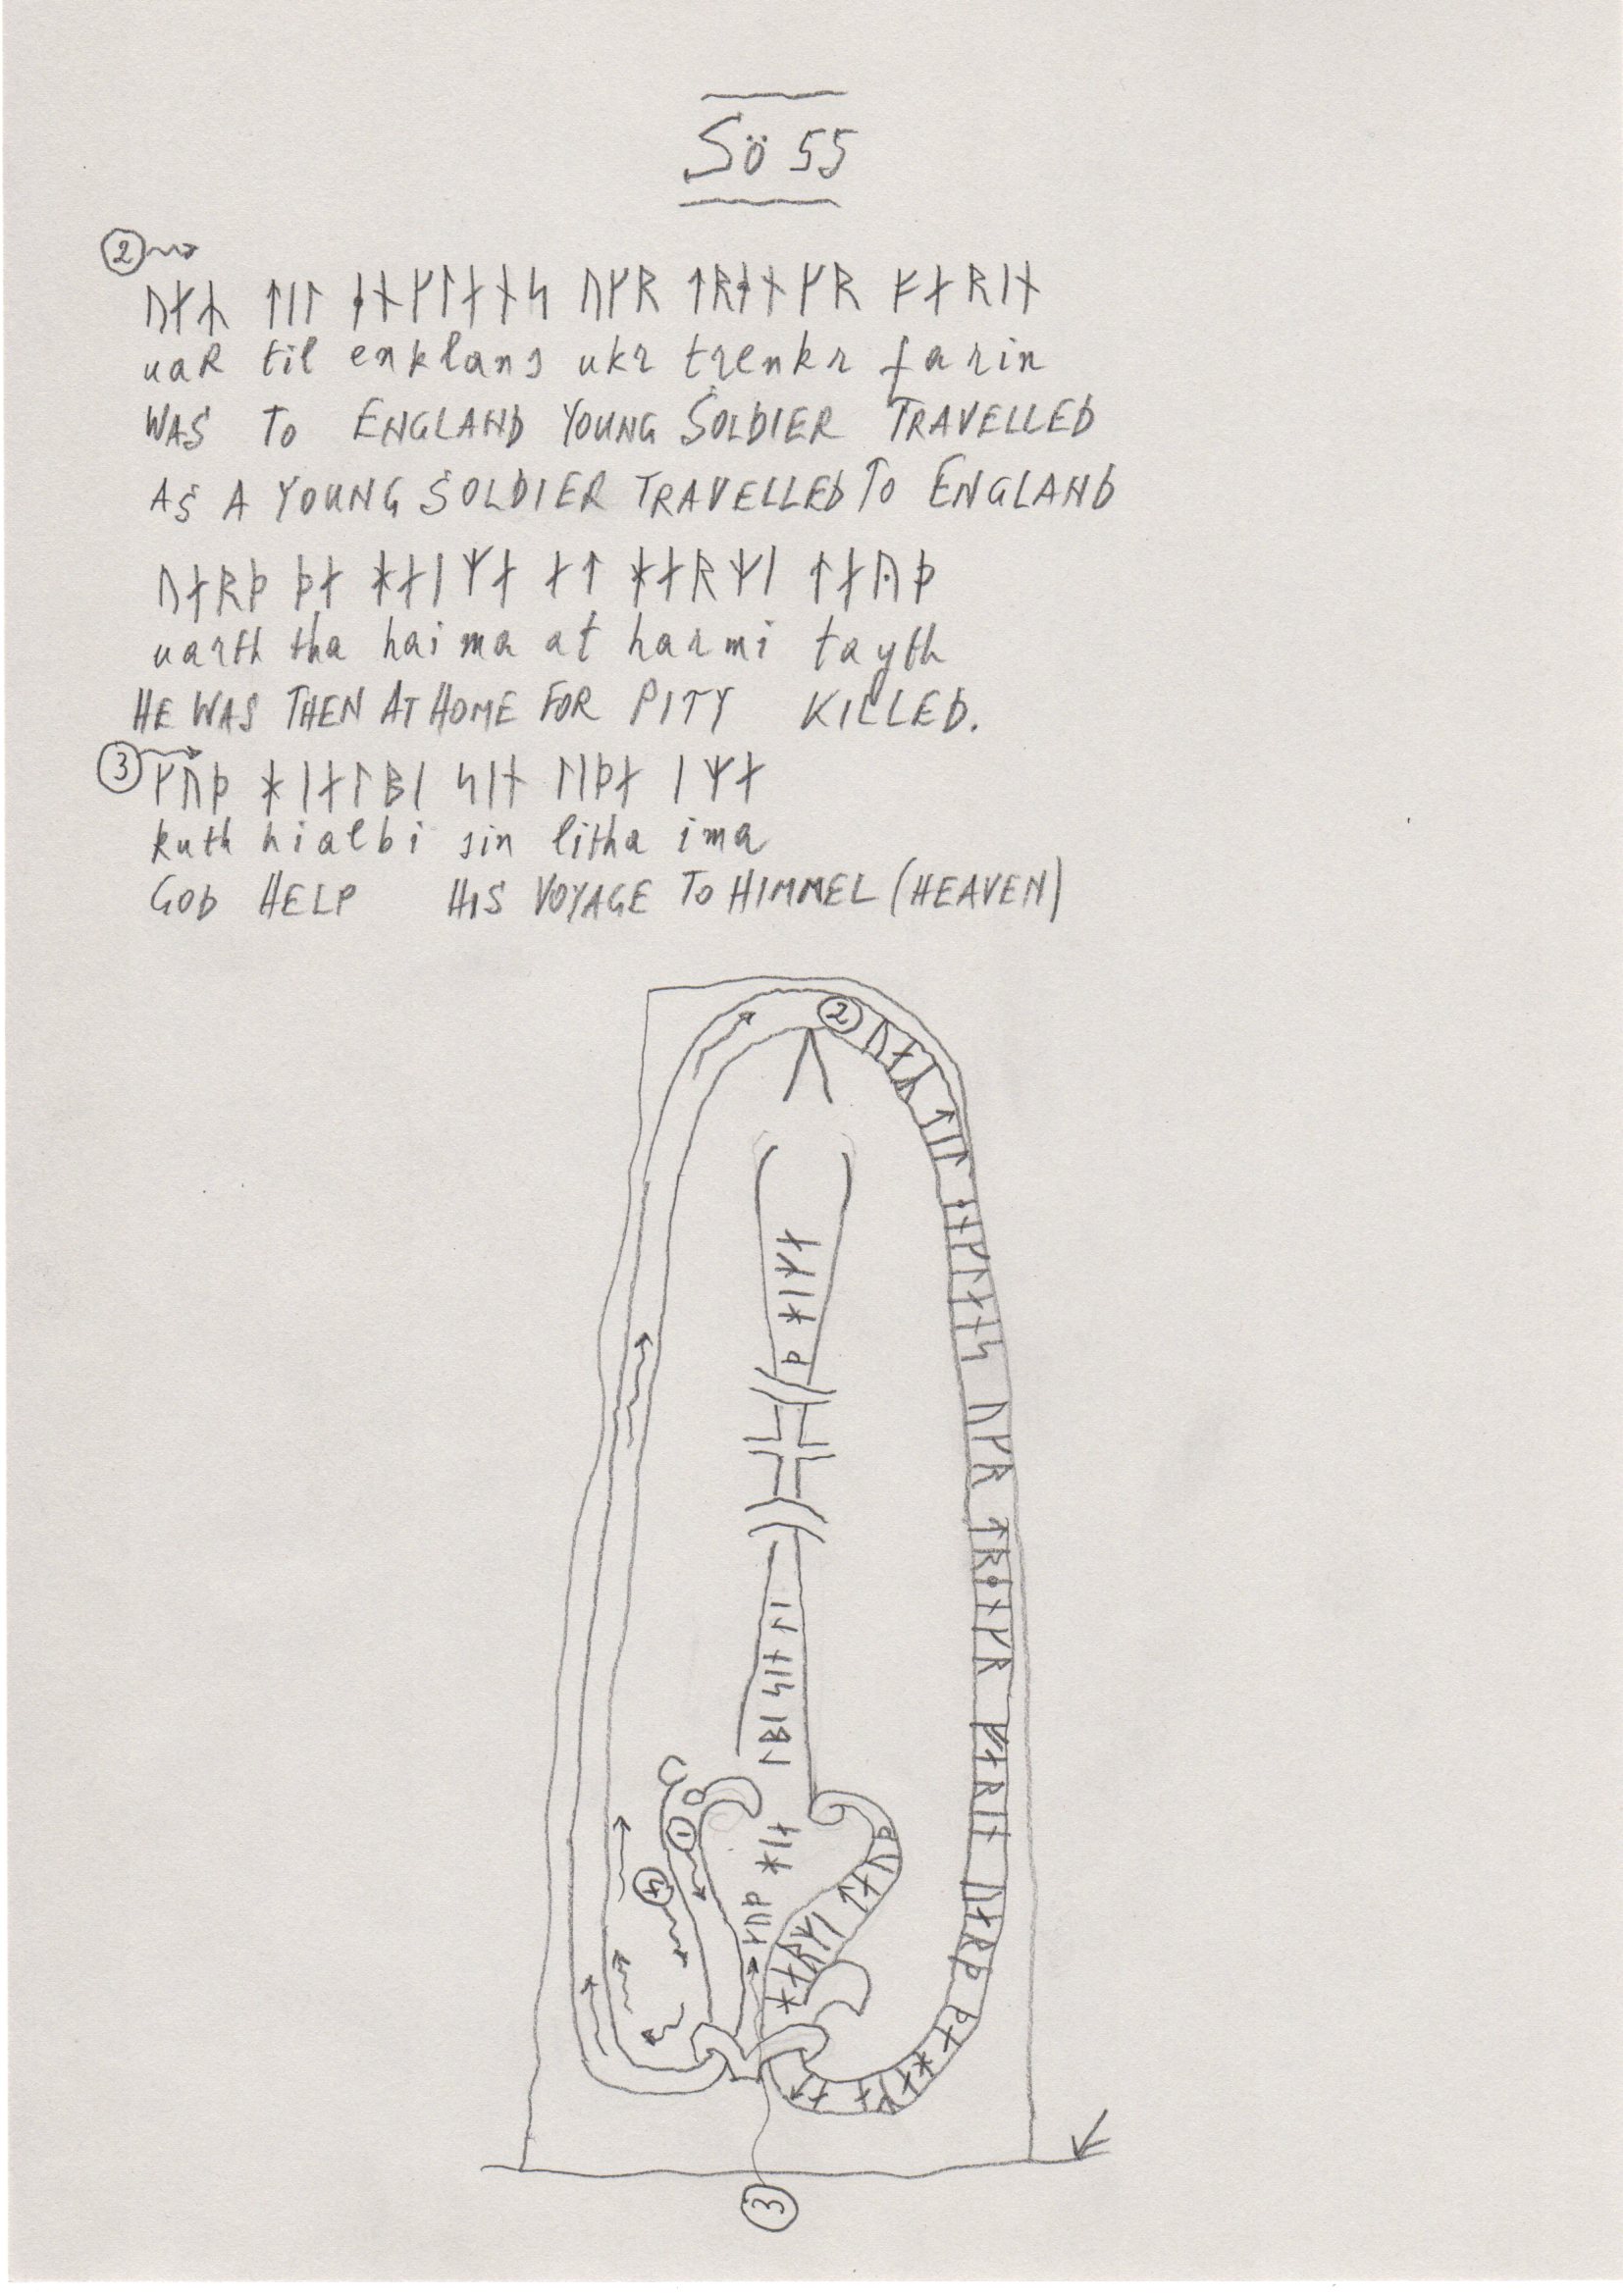 Sö 55
②
ᚢᛅᛦ ᛏᛁᛚ ᛂᚾᚴᛚᛅᚾᛋ ᚢᚴᚱ ᛏᚱᛂᚾᚴᚱ ᚠᛅᚱᛁᚾ
uaR til enklans ukr trenkr farin
WAS TO ENGLAND YOUNG SOLDIER TRAVELLED
AS A YOUNG SOLDIER TRAVELLED TO ENGLAND
ᚢᛅᚱᚦ ᚦᛅ ᚼᛅᛁᛘᛅ ᛅᛏ ᚼᛅᚱᛘᛁ ᛏᛅᚤᚦ
uarth tha haima at harmi tayth
HE WAS THEN AT HOME FOR PITY KILLED.
③
ᚴᚢᚦ ᚼᛁᛅᛚᛒᛁ ᛋᛁᚾ ᛚᛁᚦᛅ ᛁᛘᛅ
kuth hialbi sin litha ima
GOD HELP HIS VOYAGE TO HIMMEL (HEAVEN)
②
ᚢᛅᛦ ᛏᛁᛚ ᛂᚾᚴᛚᛅᚾᛋ ᚢᚴᚱ ᛏᚱᛂᚾᚴᚱ ᚠᛅᚱᛁᚾ ᚢᛅᚱᚦ ᚦᛅ
ᚼᛅᚱᛘᛁ ᛏᛅᚢᚦ
ᚴᚢᚦ ᚼᛁᛅ
ᛚᛒᛁ ᛋᛁᚾ ᛚᛁ
ᚦ ᚼᛁᛘᛅ
①
④
③